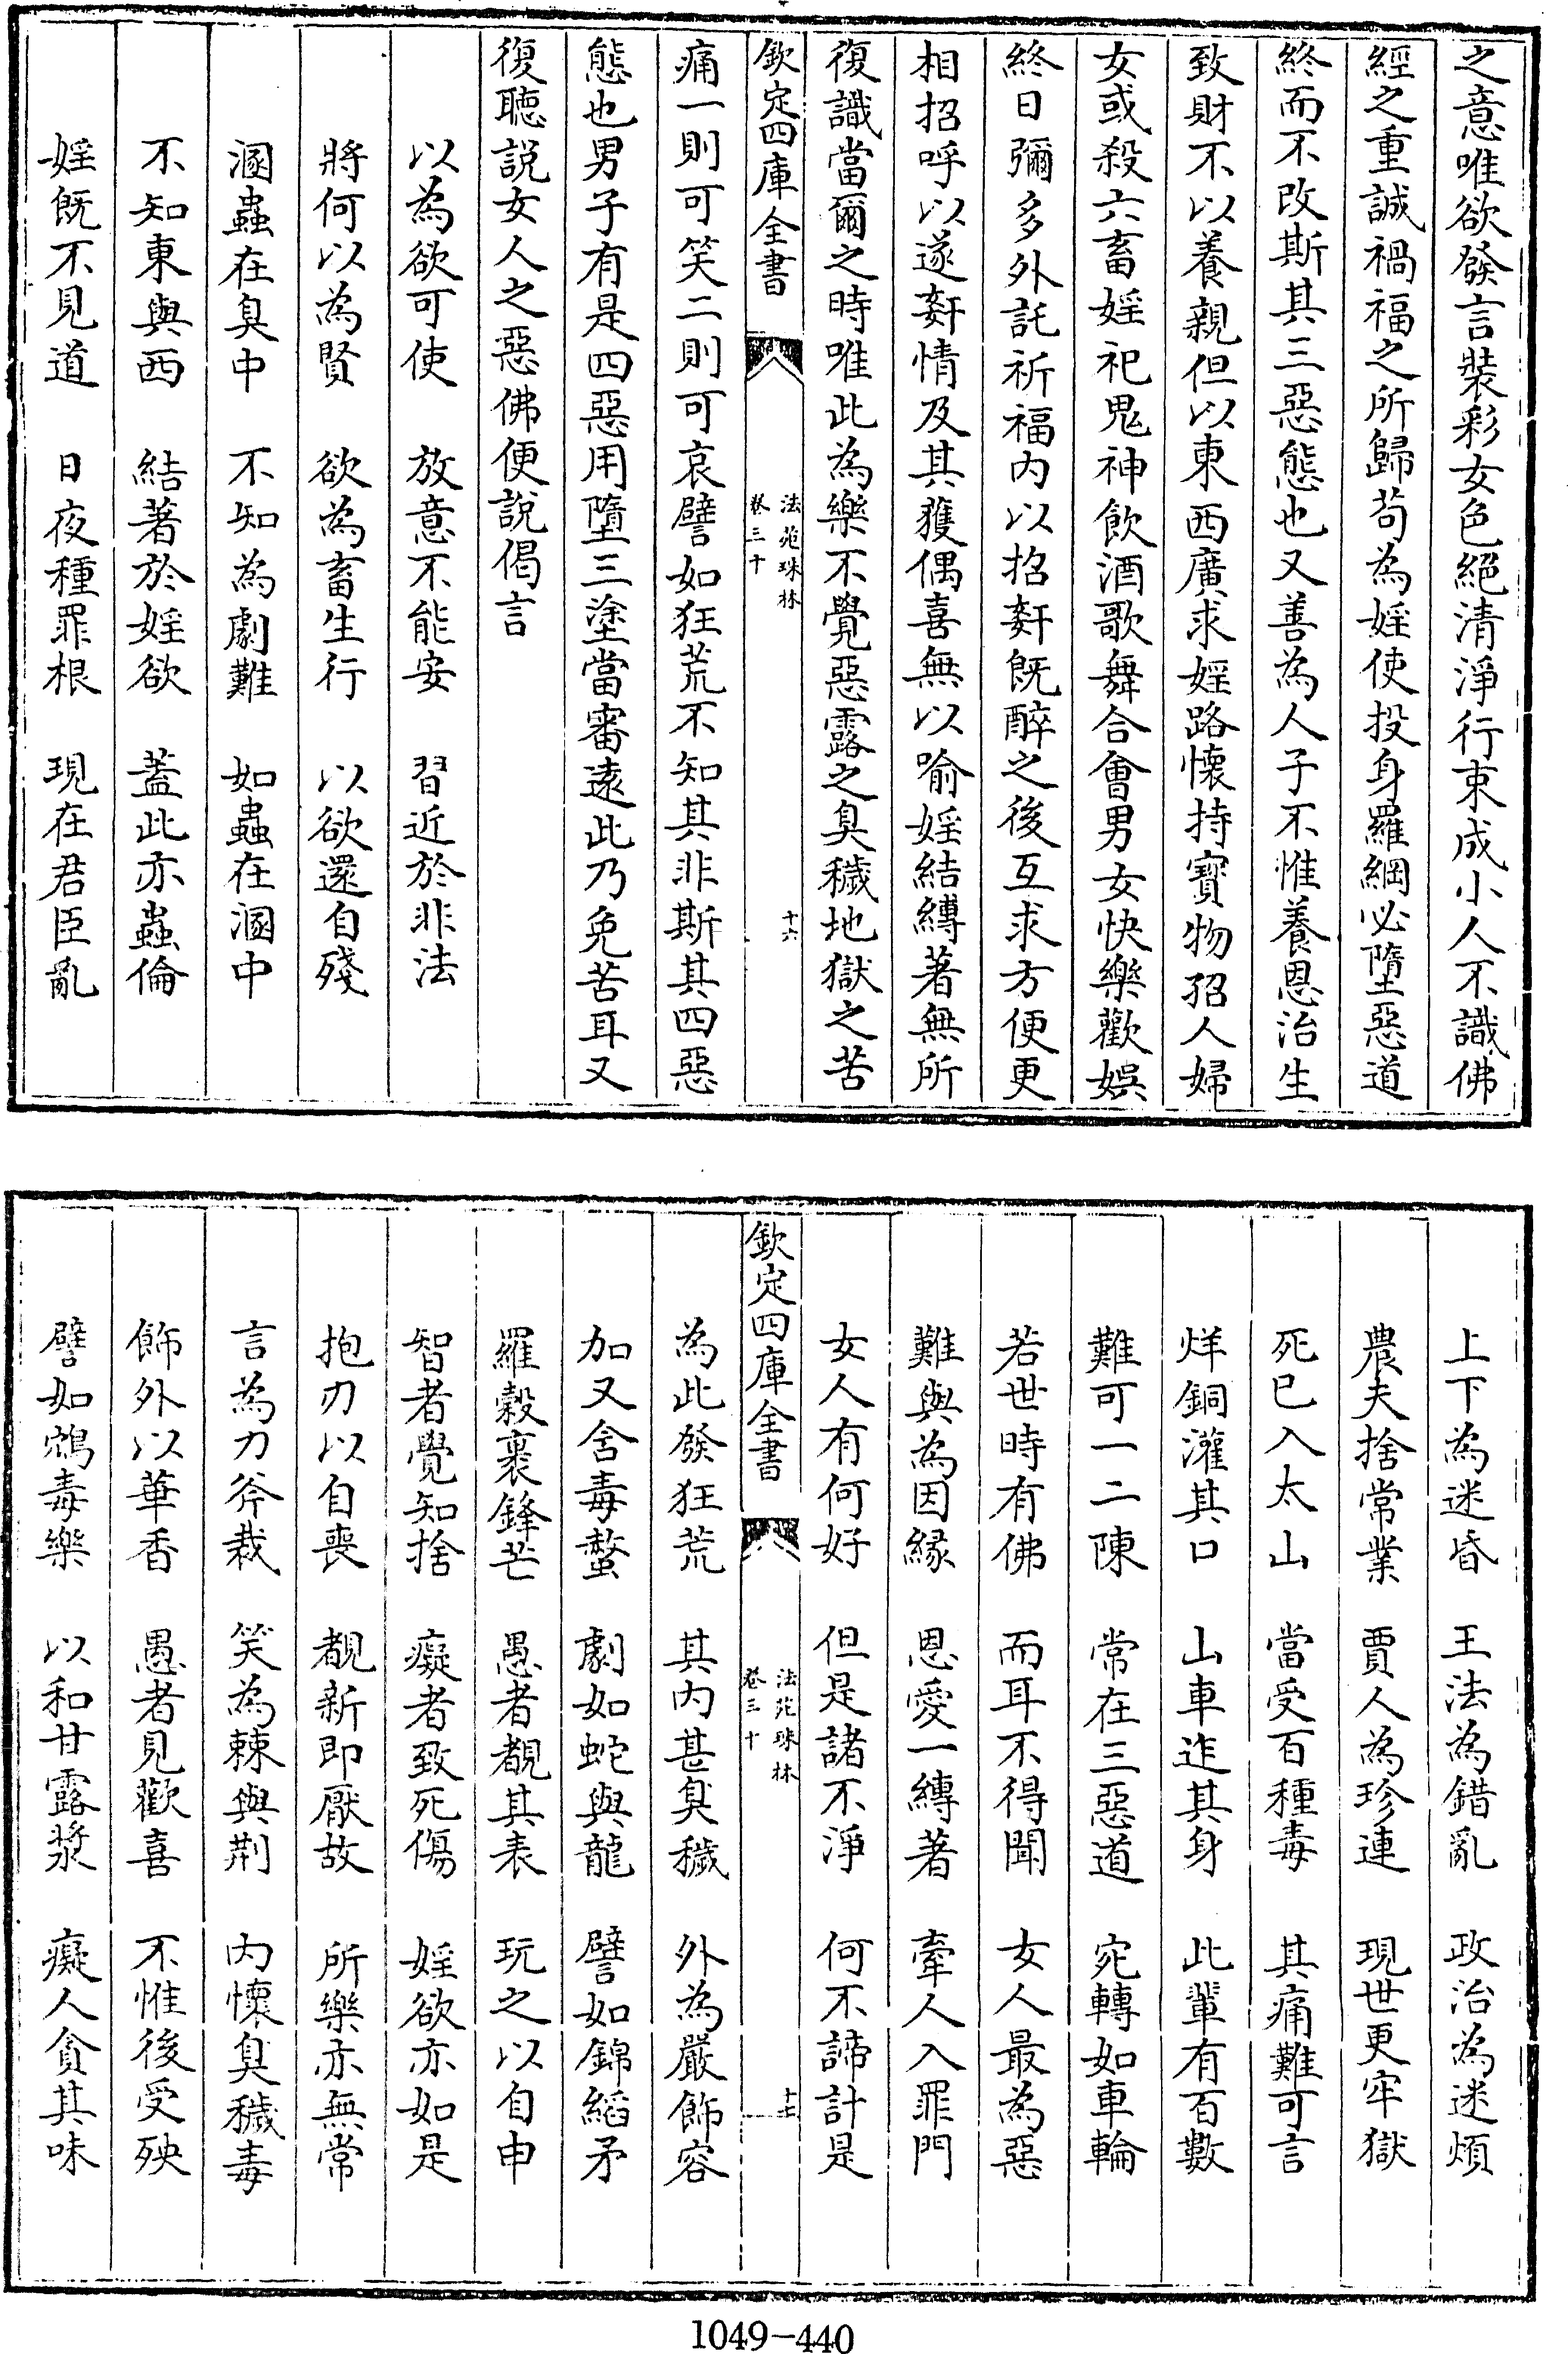 之意唯欲發言裝彩女色絕清淨行束成小人不識佛
經之重誠禍福之所歸苟為婬使投身羅網必墮惡道
終而不改斯其三惡態也又善為人子不惟養恩治生
致財不以養親但以東西廣求婬路懷持寳物招人婦
女或殺六畜婬祀鬼神飲酒歌舞合會男女快樂歡娛
終日彌多外託祈福内以招姧既醉之後互求方便更
相招呼以遂姧情及其獲偶喜無以喻婬結縛著無所
復識當爾之時唯此為樂不覺惡露之臭穢地獄之苦
欽定四庫全書
法苑珠林
卷三十
十六
痛一則可笑二則可哀譬如狂荒不知其非斯其四惡
態也男子有是四惡用墮三塗當審遠此乃免苦耳又
復聽説女人之惡佛便說偈言
以為欲可使 放意不能安 習近於非法
將何以為賢 欲為畜生行 以欲還自殘
溷蟲在臭中 不知為劇難 如蟲在溷中
不知東與西 結著於婬欲 葢此亦蟲倫
婬既不見道 日夜種罪根 現在君臣亂
上下為迷昏 王法為錯亂 政治為迷煩
農夫捨常業 賈人為珍連 現世更牢獄
死已入太山 當受百種毒 其痛難可言
烊銅灌其口 山車迮其身 此輩有百數
難可一二陳 常在三惡道 宛轉如車輪
若世時有佛 而耳不得聞 女人最為惡
難與為因緣 恩愛一縛著 牽人入罪門
女人有何好 但是諸不淨 何不諦計是
欽定四庫全書
法苑珠林
卷三十
十七
為此發狂荒 其内甚臭穢 外為嚴飾容
加又含毒螫 劇如蛇與龍 譬如錦縚矛
羅縠裹鋒芒 愚者覩其表 玩之以自申
智者覺知捨 癡者致死傷 婬欲亦如是
抱刃以自喪 覩新即厭故 所樂亦無常
言為刀斧裁 笑為棘與荆 内懷臭穢毒
飾外以華香 愚者見歡喜 不惟後受殃
譬如鴆毒樂 以和甘露漿 癡人貪其味
1049-440